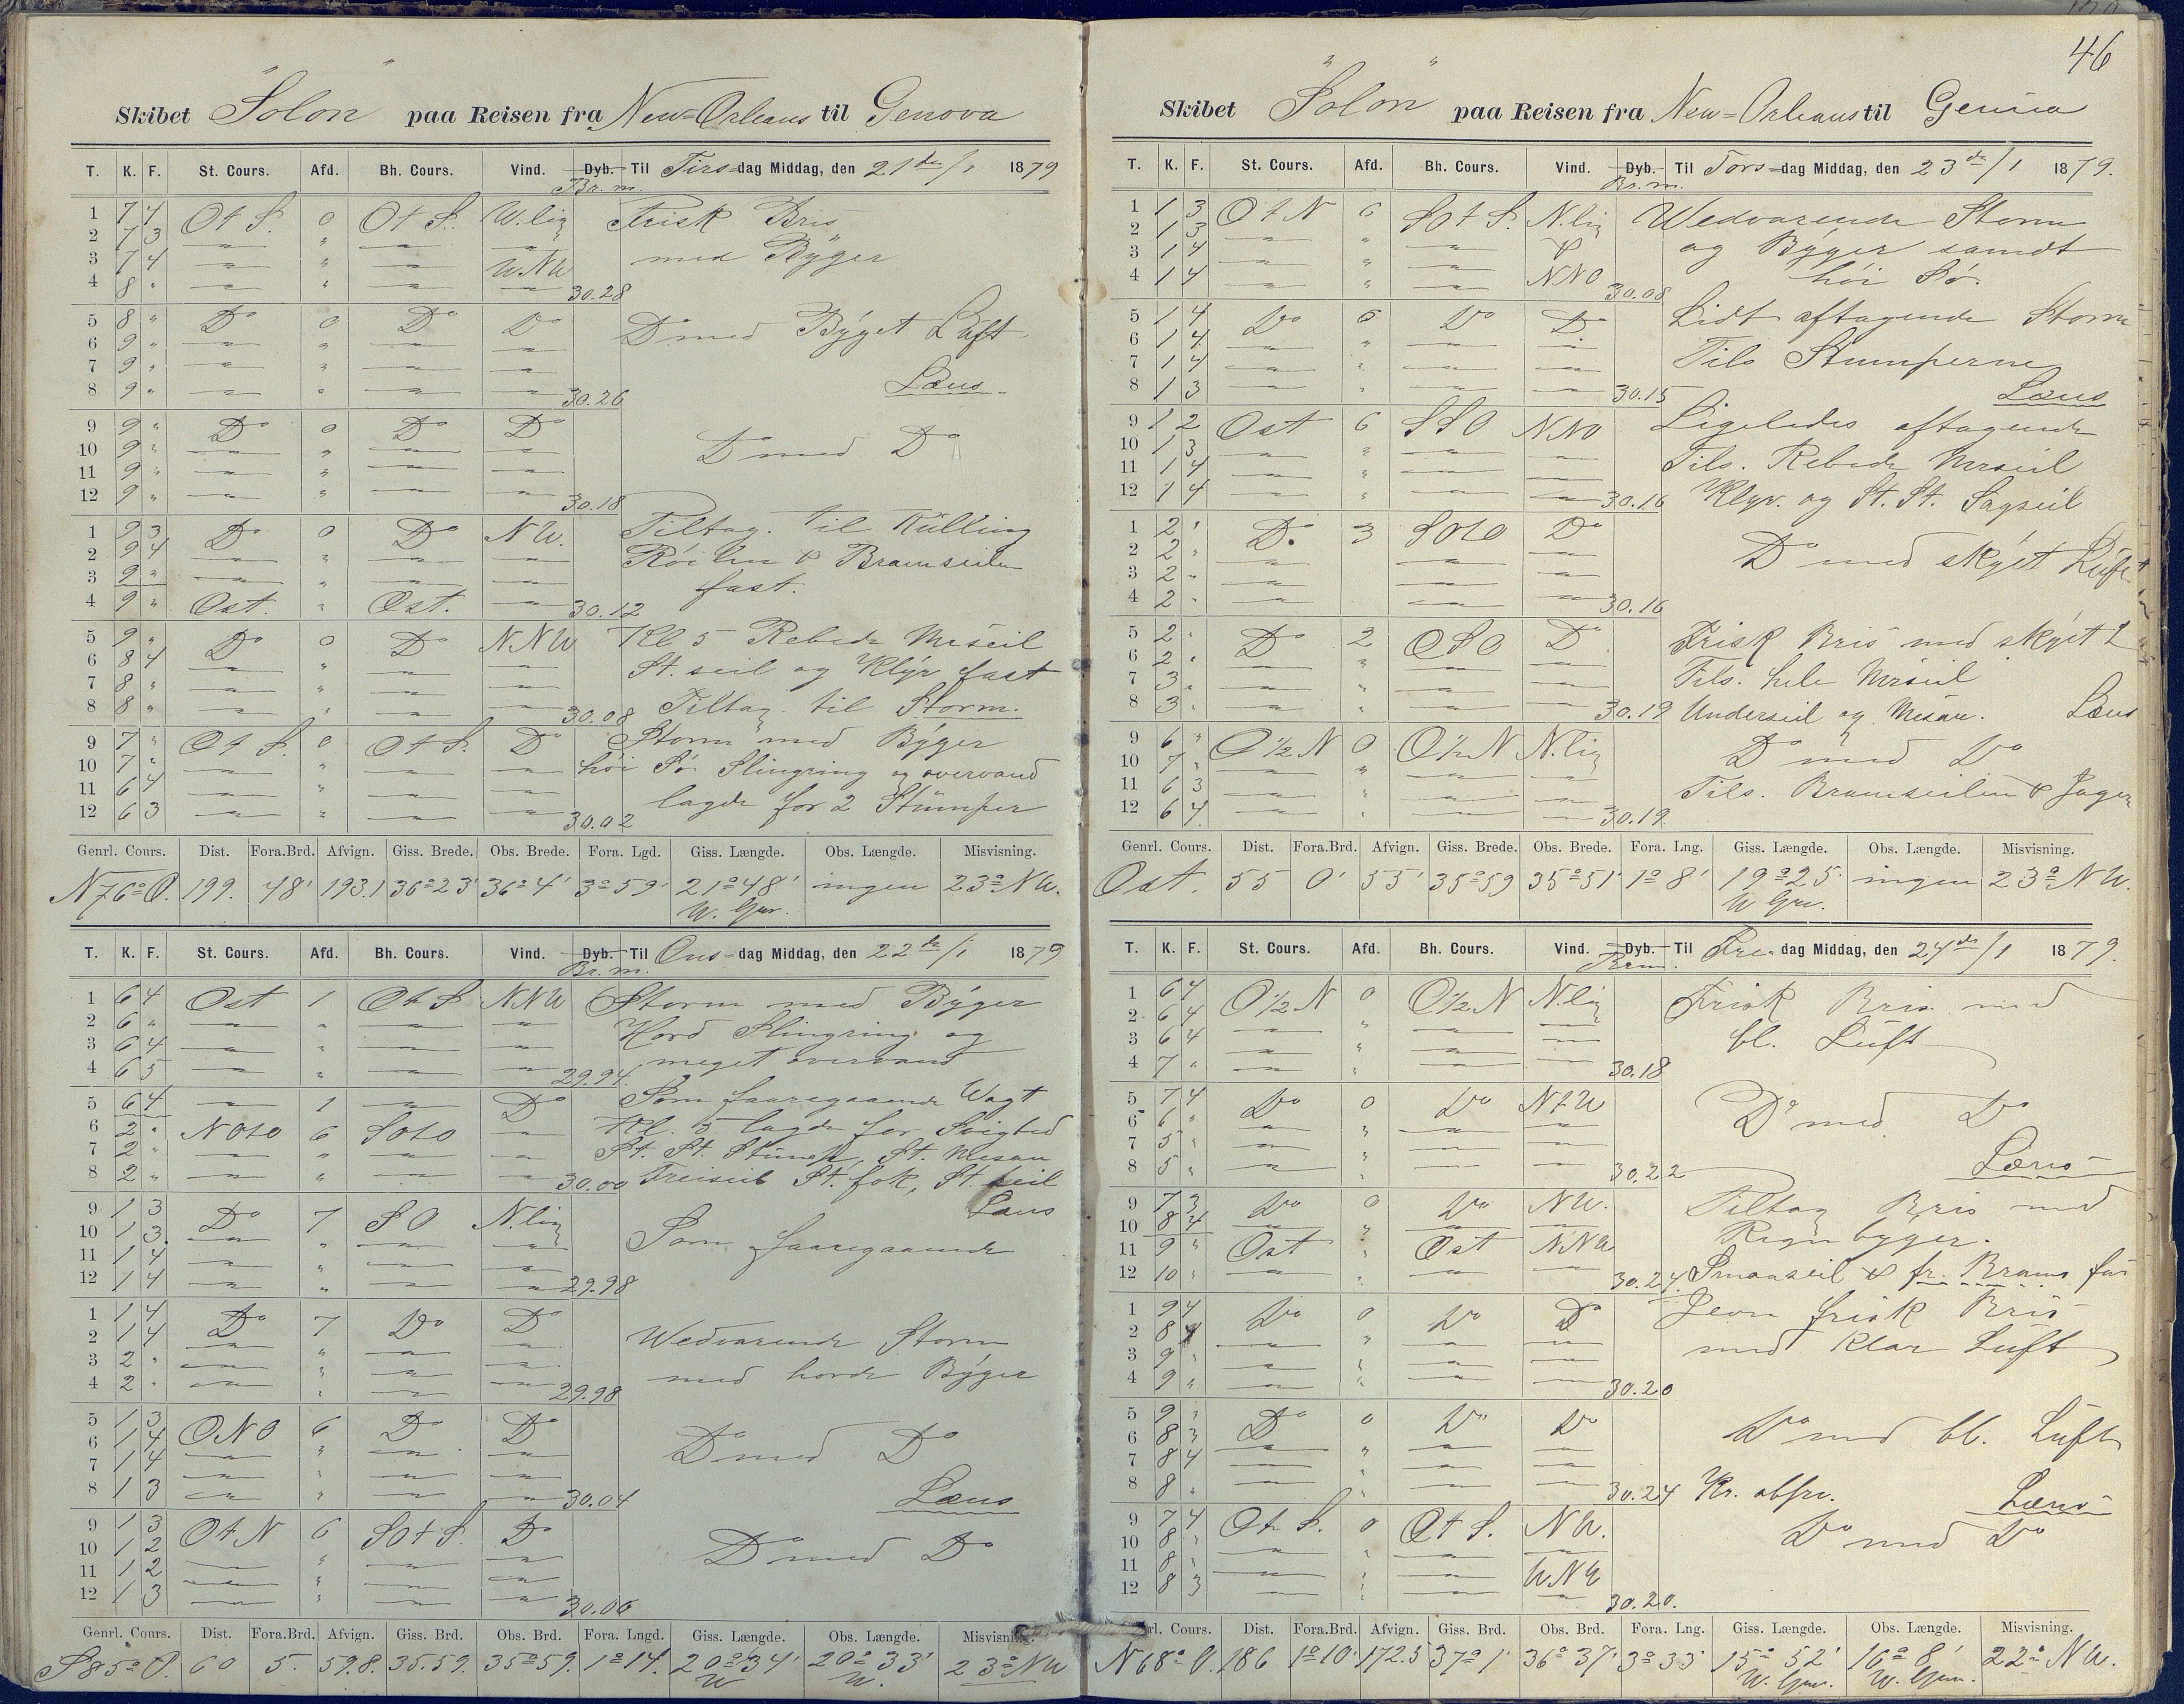 46
Skibet "Solon" paa Reisen fra New=Orleans til Genova
T. K. F. St. Cours. Afd. Bh. Cours. Vind. Dyb. Til Tirs=dag Middag, den 21de/1 1879
Br. m.
1 7 4 Ot S. 0 Ot S. W.lig Frisk Bris
2 7 3 — " — "
3 7 4 — " — WNW med Byger
4 8 " — " — — 30.28
5 8 " Do 0 Do Do Do med Byget Luft
6 9 " — " — —
7 9 " — " — —
8 9 " — " — — 30.26 Læns
9 9 " Do 0 Do Do
10 9 " — " — — Do med Do
11 9 " — " — —
12 9 " — " — — 30.18
1 9 3 Do 0 Do NW. Tiltag. til Kulling
2 9 4 — " — — Röilen & Bramseilen
3 9 " — " — — fast.
4 9 " Ost. " Ost. — 30.12
5 9 " Do 0 Do NNW Kl 5 Rebede Merseil
6 8 4 — " — — St. seil og Klyv fast
7 8 " — " — —
8 8 " — " — — 30.08 Tiltag til Storm.
9 7 " Ot S. 0 Ot S. Do Storm med Byger
10 7 " — " — — höi Sö Slingring og overvand
11 6 4 — " — — lagde for 2 Stumper
12 6 3 — " — — 30.02
Genrl. Cours. Dist. Fora.Brd. Afvign. Giss. Brede. Obs. Brede. Fora. Lgd. Giss. Længde. Obs. Længde. Misvisning.
N76°O. 199. 48' 193.1 36°23' 36°4' 3°59' 21°48' ingen 23°NW.
W. Grw.
T. K. F. St. Cours. Afd. Bh. Cours. Vind. Dyb. Til Ons=dag Middag, den 22de/1 1879
Br. m.
1 6 4 Ost 1 Ot S NNW Storm med Byger
2 6 " — " — — Hord Slingring og
3 6 4 — " — — meget overvand
4 6 5 — " — — 29.94.
5 6 4 — 1 — Do Som foaregaaende Wagt
6 2 " NOtO 6 SOtO — Kl. 5 lagde for
7 2 " — " — — St. St. Stump, St. Mesan
8 2 " — " — — 30.00 Treiseil St. fok, St. seil
9 1 3 Do 7 SO N.lig Læns
10 1 3 — " — — Som foaregaaende
11 1 4 — " — —
12 1 4 — " — — 29.98
1 1 4 Do 7 Do Do
2 1 4 — " — — Wedvarende Storm
3 2 " — " — — med horde Byger
4 2 " — " — — 29.98
5 1 3 ONO 6 Do Do
6 1 4 — " — — Do med Do
7 1 4 — " — —
8 1 3 — " — — 30.04 Læns
9 1 3 Ot N 6 SOt S. Do
10 1 2 — " — — Do med Do
11 1 2 — " — —
12 1 3 — " — — 30.06
Genrl. Cours. Dist. Fora.Brd. Afvign. Giss. Brd. Obs. Brd. Fora. Lngd. Giss. Længde. Obs. Længde. Misvisning.
S85°O. 60 5. 59.8. 35.59. 35°59. 1°14. 20°34' 20°33' 23°NW
W W.
Skibet "Solon" paa Reisen fra New=Orleans til Genua
T. K. F. St. Cours. Afd. Bh. Cours. Vind. Dyb. Til Tors=dag Middag, den 23de/1 1879.
Br. m.
1 1 3 Ot N 6 SOt S. N.lig Wedvarende Storm
2 1 3 — " — & og Byger samdt
3 1 4 — " — höi Sö.
4 1 4 — " — NNO 30.08
5 1 4 Do 6 Do Do Lidt aftagende Storm
6 1 4 — " — — Tils Stumperne
7 1 4 — " — —
8 1 3 — " — — 30.15 Læns
9 1 2 Ost 6 SSO NNO Ligeledes aftagende
10 1 3 — " — — Tils. Rebede Merseil
11 1 4 — " — —
12 1 4 — " — — 30.16 Klyv. og St. St. Sagseil
1 2 " Do 3 SOtO Do
2 2 " — — — Do med skyet Luft
3 2 " — — —
4 2 " — — — 30.16
5 2 " Do 2 OSO Do Frisk Bris med skyet L
6 2 " — " — —
7 3 " — " — — Tils. hele Merseil
8 3 " — " — — 30.19 Underseil og Mesan. Læns
9 6 " O½N 0 O½N N.lig Do med Do
10 7 " — " — —
11 6 3 — " — — Tils. Bramseilen & Jager
12 6 4 — " — — 30.19.
Genrl. Cours. Dist. Fora.Brd. Afvign. Giss. Brede. Obs. Brede. Fora. Lng. Giss. Længde. Obs. Længde. Misvisning.
Ost. 55 0' 55' 35°59 35°51' 1°8' 19°25 ingen 23°NW.
W Grw.
T. K. F. St. Cours. Afd. Bh. Cours. Vind. Dyb. Til Fre-dag Middag, den 24de/1 1879.
Br.m.
1 6 4 O½N 0 O½N N.lig Frisk Bris med
2 6 4 — " — — bl. Luft
3 6 4 — " — —
4 7 " — " — — 30.18
5 7 4 Do 0 Do NtW Do med Do
6 6 " — " — —
7 5 " — " — —
8 5 " — " — — 30.22 Læns
9 7 3 Do 0 Do NW. Tiltag Bris med
10 8 4 — " — — Regnbyger.
11 9 " Ost " Ost NNW
12 10 " — " — — 30.24. Smaaseil & fr. Brams. fas
1 9 4 Do 0 Do Do Jevn frisk Bris
2 8 4 — " — — med klar Luft
3 9 " — " — —
4 9 " — " — — 30.20
5 9 " Do 0 Do Do Do med bl. Luft
6 8 3 — " — —
7 8 4 — " — —
8 8 " — " — — 30.24 Kr. obsrv. Læns
9 7 4 Ot S. 0 Ot S. NW. Do med Do
10 8 " — " — —
11 8 " — " — WNW
12 8 3 — " — — 30.20.
rl. Cours. Dist. Fora.Brd. Afvign. Giss. Brd. Obs. Brd. Fora. Lng. Giss. Længde. Obs. Længde. Misvisning.
N68°O. 186 1°10' 172.5 37°1' 36°37' 3°35' 15°52' 16°8' 22°NW.
W. Grw. W. Grw.